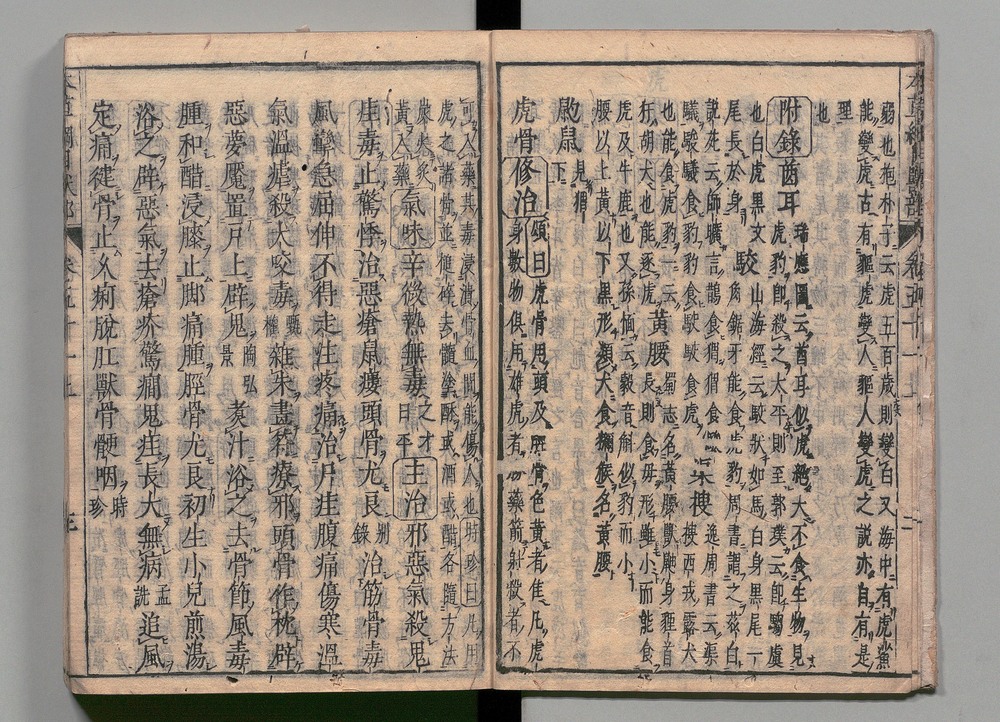 弱也抱朴子云虎五百歲則變白又海中有虎鯊
能變虎古有貙虎變人貙人變虎之說亦自有是
理
也
附錄酋耳 瑞應圖云酋耳似虎絕大不食生物見
虎豹即殺之太平則至郭璞云即騶虞
也白虎黑文 駮 山海經云駮狀如馬白身黑尾一
尾長於身 角鋸牙能食虎豹周書謂之茲白
說苑云師曠言鵲食猬猬食
駮食豹豹食駮駮食虎 渠搜 逸周書云渠
搜西戎露犬
也能食虎豹一云 黃腰 蜀志名黃腰獸鼬身貍首
狂胡犬也能逐虎 長則食母形雖小而能食
虎及牛鹿也又孫愐云豰音斛似豹而小
腰以上黃以下黑形類犬食獼猴名黃腰
䶅鼠 見猬
下
虎骨 修治 頌曰虎骨用頭及脛骨色黃者佳凡虎
身數物俱用雄虎者勝藥箭射殺者不
可入藥其毒浸漬骨血間能傷人也時珍曰凡用
虎之諸骨並搥碎去髓塗酥或酒或醋各隨方法
炭火炙
黃入藥 氣味 辛微熱無毒 之才
曰平 主治 邪惡氣殺鬼
疰毒止驚悸治惡瘡鼠瘻頭骨尤良 別
錄 治筋骨毒
風攣急屈伸不得走疰疼痛治尸疰腹痛傷寒溫
氣溫瘧殺犬咬毒 甄
權 雜朱畫符療邪頭骨作枕辟
惡夢魘置戶上辟鬼 陶弘
景 煮汁浴之去骨節風毒
腫和醋浸膝止脚痛腫脛骨尤良初生小兒煎湯
浴之辟惡氣去瘡疥驚癇鬼疰長大無病 孟
詵 追風
定痛健骨止久痢脫肛獸骨哽咽 時
珍